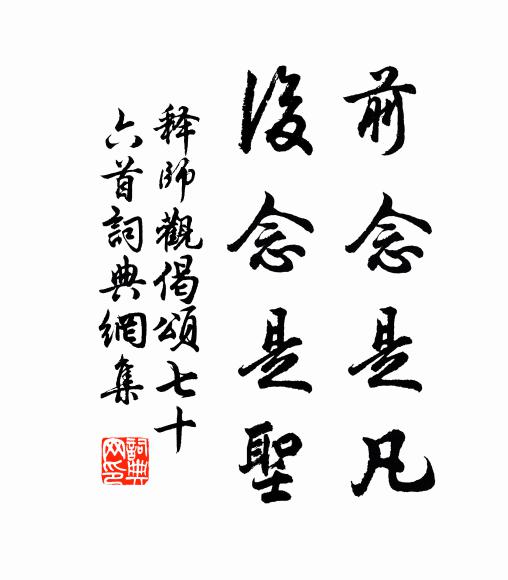 前念是凡
後念是聖
释師觀偈頌七十
六首詞典網集
詞典网印